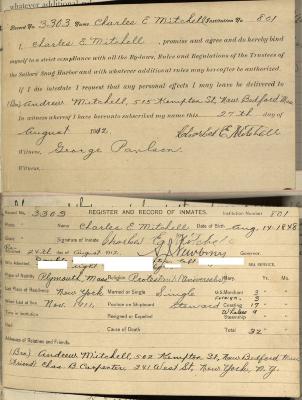 whatever additional
Record No. 3303 Name Charles E Mitchell Institution No 801
I, Charles E. Mitchell, promise and agree and do hereby bind
myself to a strict compliance with all the By-laws, Rules and Regulations of the Trustees of
the Sailors' Snug Harbor and with whatever additional rules may hereafter be authorized.
If I die intestate I request that any personal effects I may leave be delivered to
(Bro) Andrew Mitchell, 515 Kempton St, New Bedford Mass
In witness whereof I have hereunto subscribed my name this 27th day of
August 1912. Charles E. Mitchell
Witness, George Paulson
Witness,
Record No. 3303 REGISTER AND RECORD OF INMATES. Institution Number 801
Name Charles E Mitchell Date of Birth Aug. 14 1848
Signature of Inmate Charles E Mitchell
24th day of August 1912. Newbury Governor.
Place of Nativity Plymouth Mass Religion Protestant (Universalist) Yrs. Ms.
Last Place of Residence New York Married or Single Single U.S. Merchant 3
Foreign 3
When Last at Sea Nov. 1911. Position on Shipboard Steward Coasting 17
Time in Institution Resigned or Expelled Whalers 9
Steamship
Died Cause of Death Total 32
Addresses of Relatives and Friends.
(Bro) Andrew Mitchell, 502 Kempton St, New Bedford Mass
(Friend) Chas. B. Carpenter 241 West St. New York, N.Y.